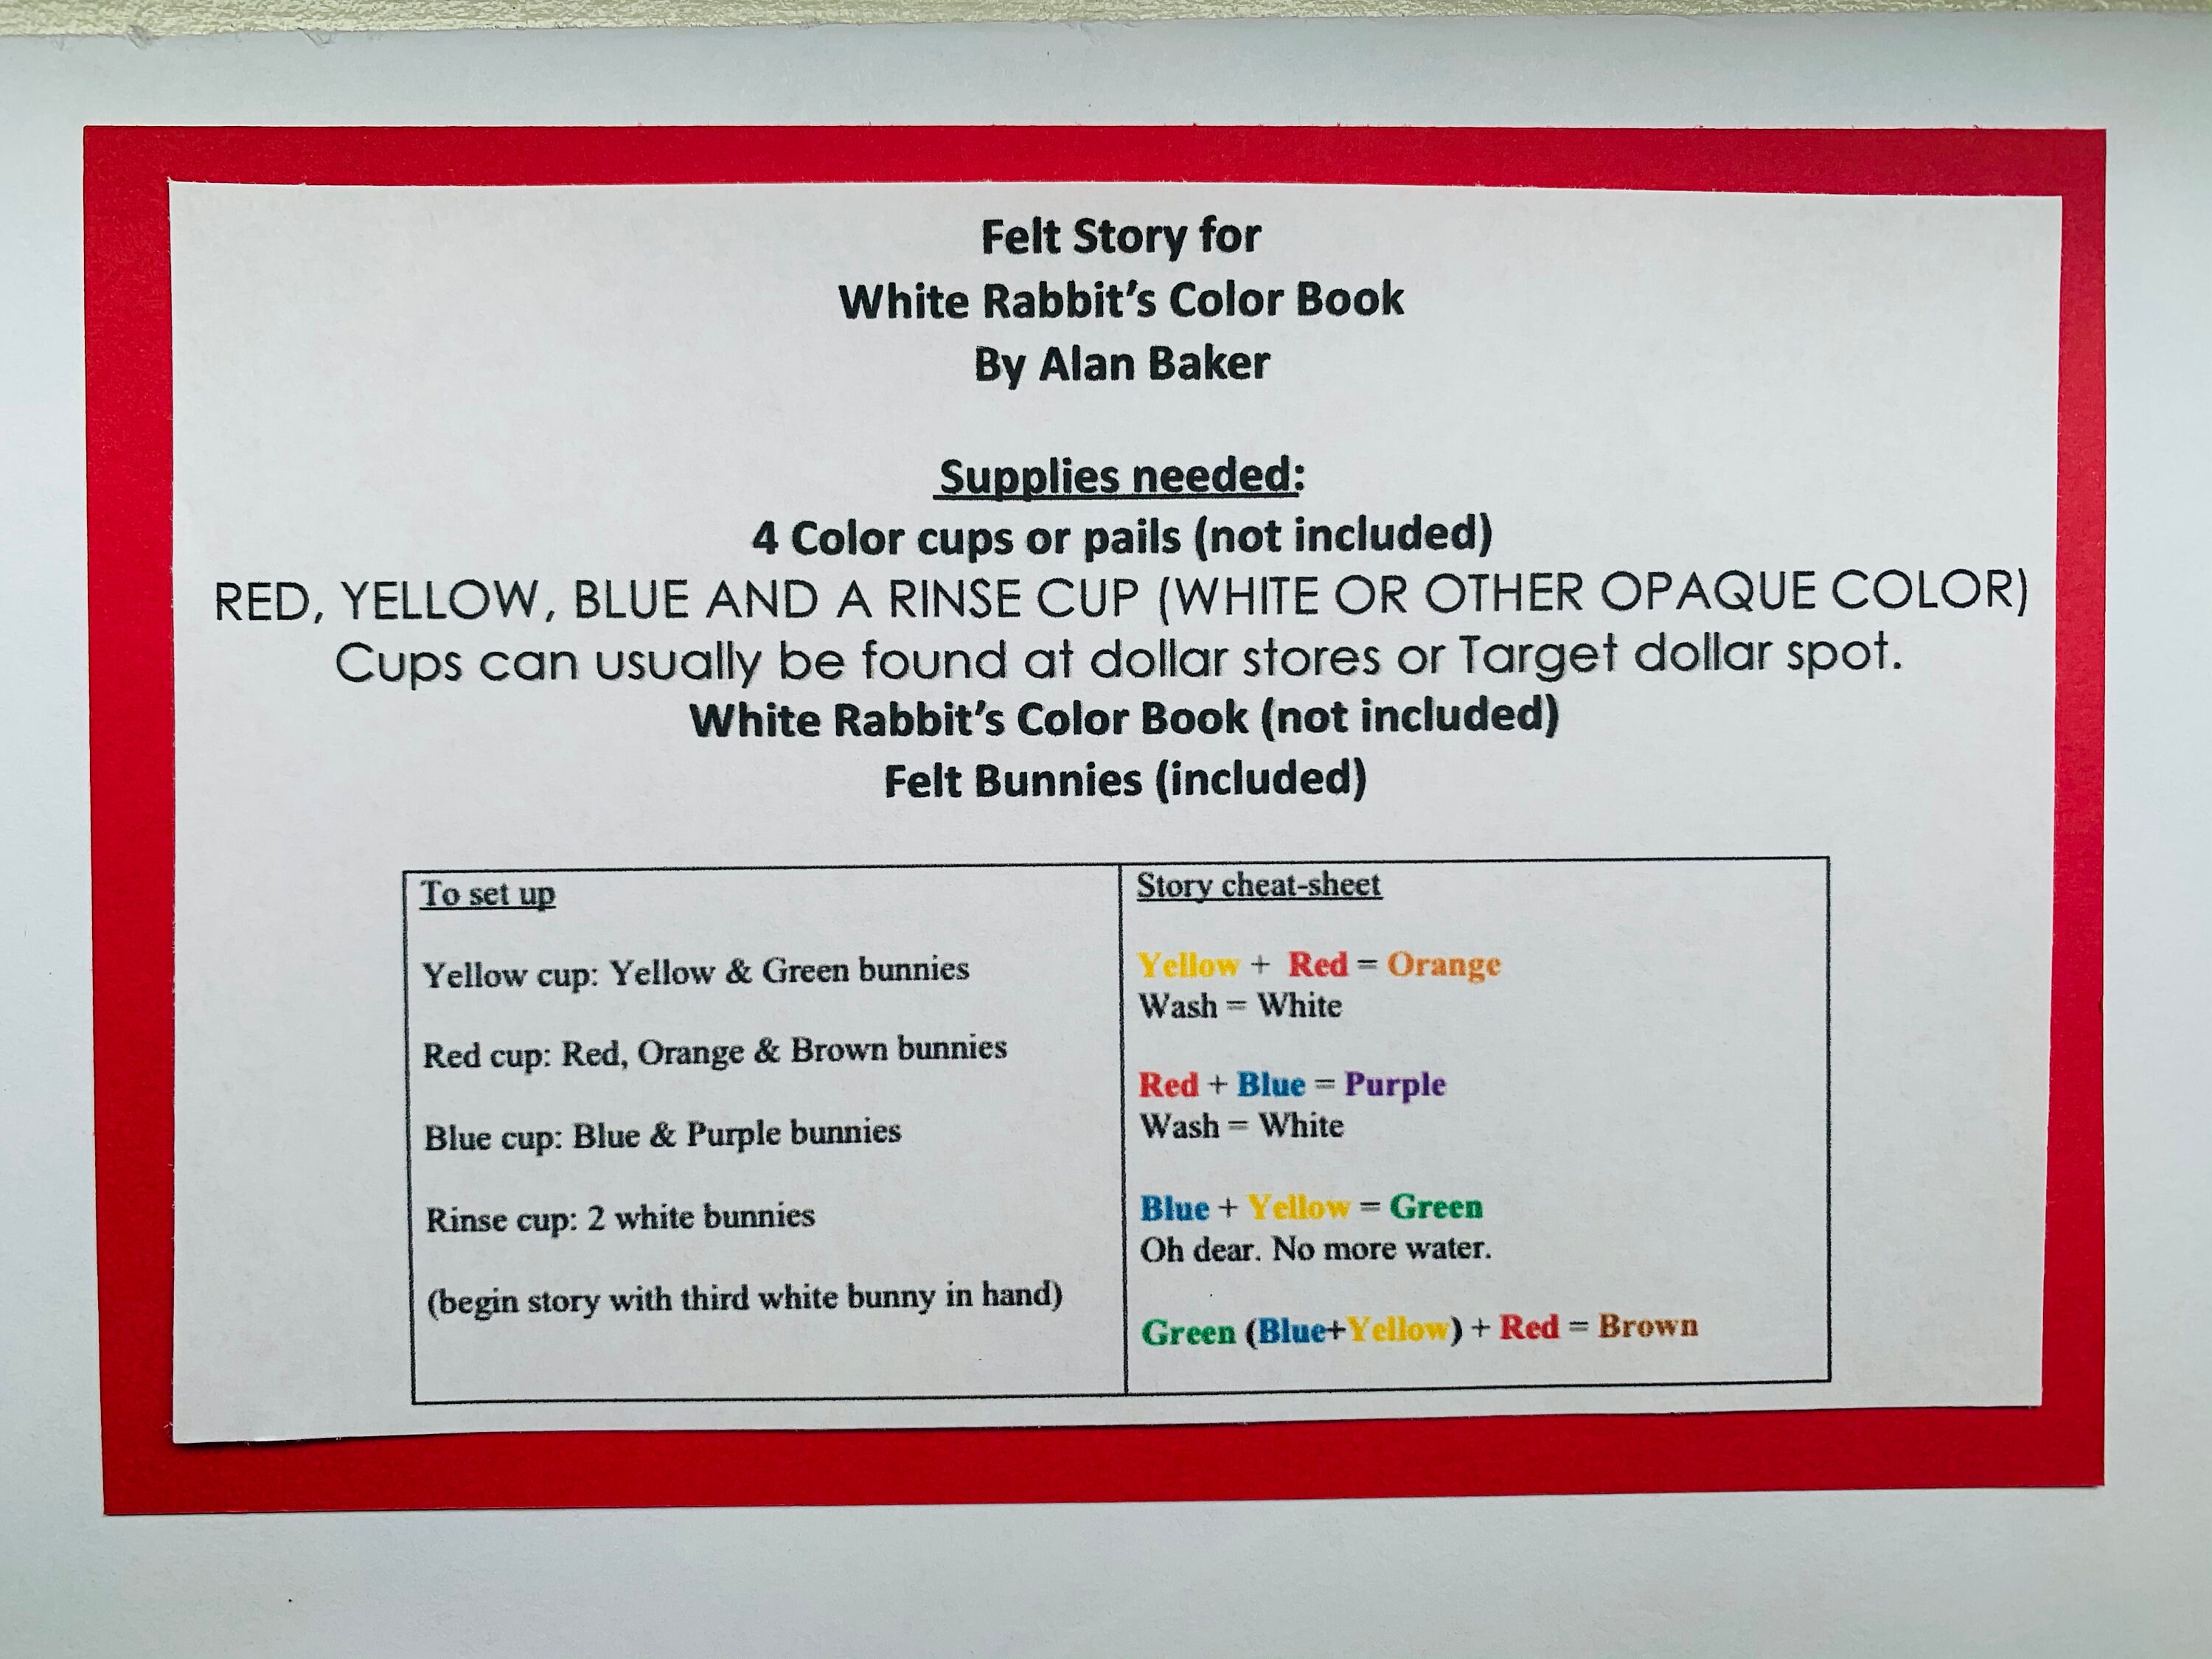 Felt Story for
White Rabbit’s Color Book
By Alan Baker
Supplies needed:
4 Color cups or pails (not included)
RED, YELLOW, BLUE AND A RINSE CUP (WHITE OR OTHER OPAQUE COLOR)
Cups can usually be found at dollar stores or Target dollar spot.
White Rabbit’s Color Book (not included)
Felt Bunnies (included)
To set up
Yellow cup: Yellow & Green bunnies
Red cup: Red, Orange & Brown bunnies
Blue cup: Blue & Purple bunnies
Rinse cup: 2 white bunnies
(begin story with third white bunny in hand)
Story cheat-sheet
Yellow + Red = Orange
Wash = White
Red + Blue = Purple
Wash = White
Blue + Yellow = Green
Oh dear. No more water.
Green (Blue+Yellow) + Red = Brown